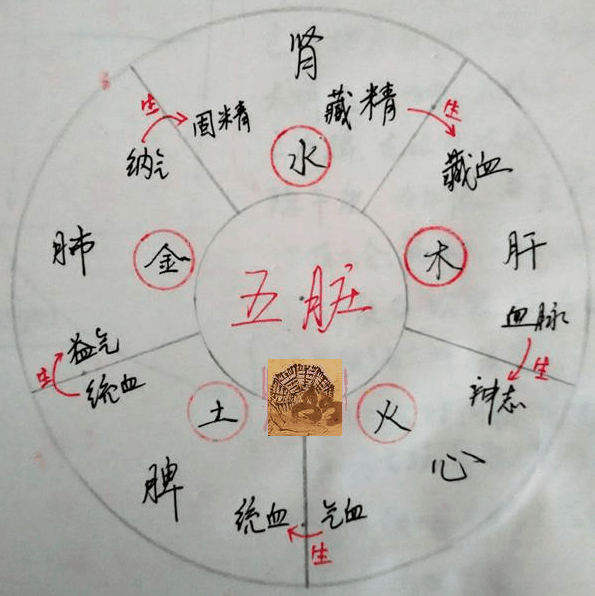 肾
生
固精
藏精
生
纳气
水
藏血
肺
金
五脏
木
肝
血脉
益气
生
统血
生
神志
土
火
脾
心
统血
气血
生